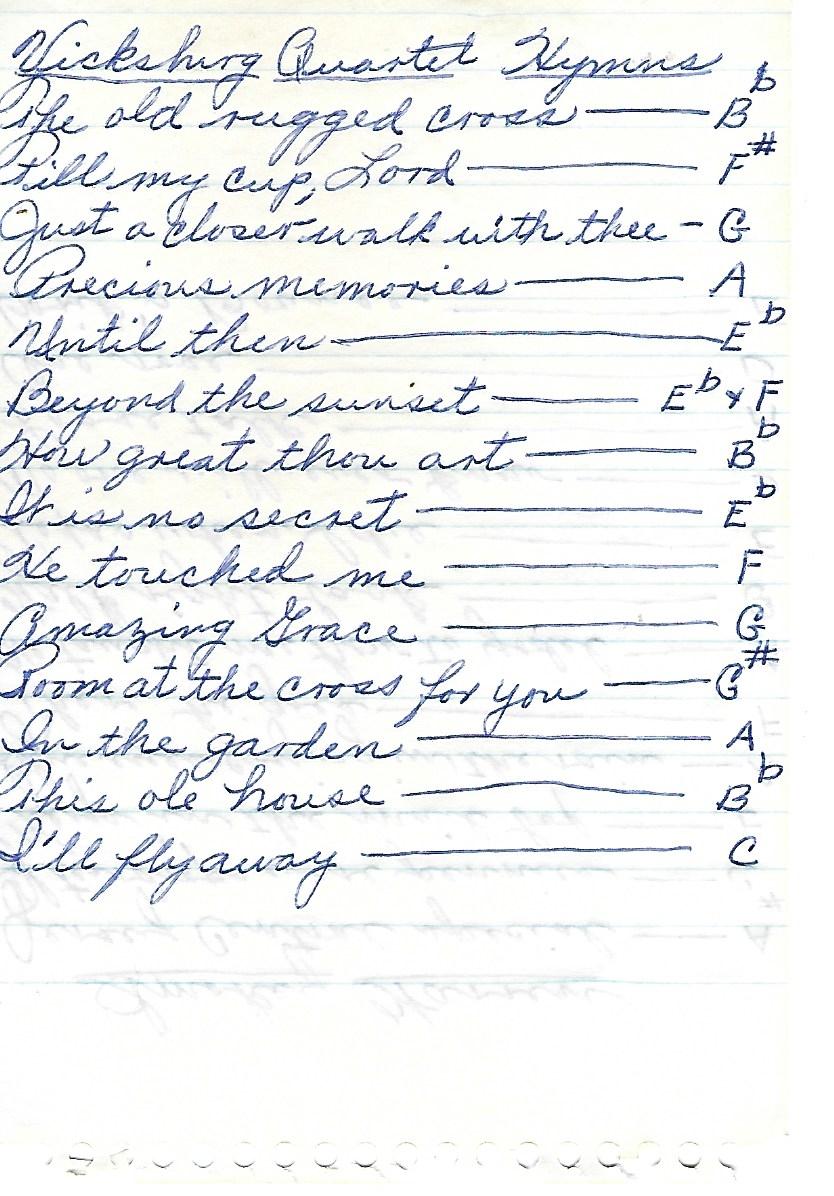 Vicksburg Quartet Hymns
The old rugged cross — B♭
Fill my cup, Lord — F#
Just a closer walk with thee - G
Precious memories — A
Until then — E♭
Beyond the sunset — E♭ & F
How great thou art — B♭
It is no secret — E♭
He touched me — F
Amazing Grace — G
Room at the cross for you — G#
In the garden — A
This ole house — B♭
I'll fly away — C